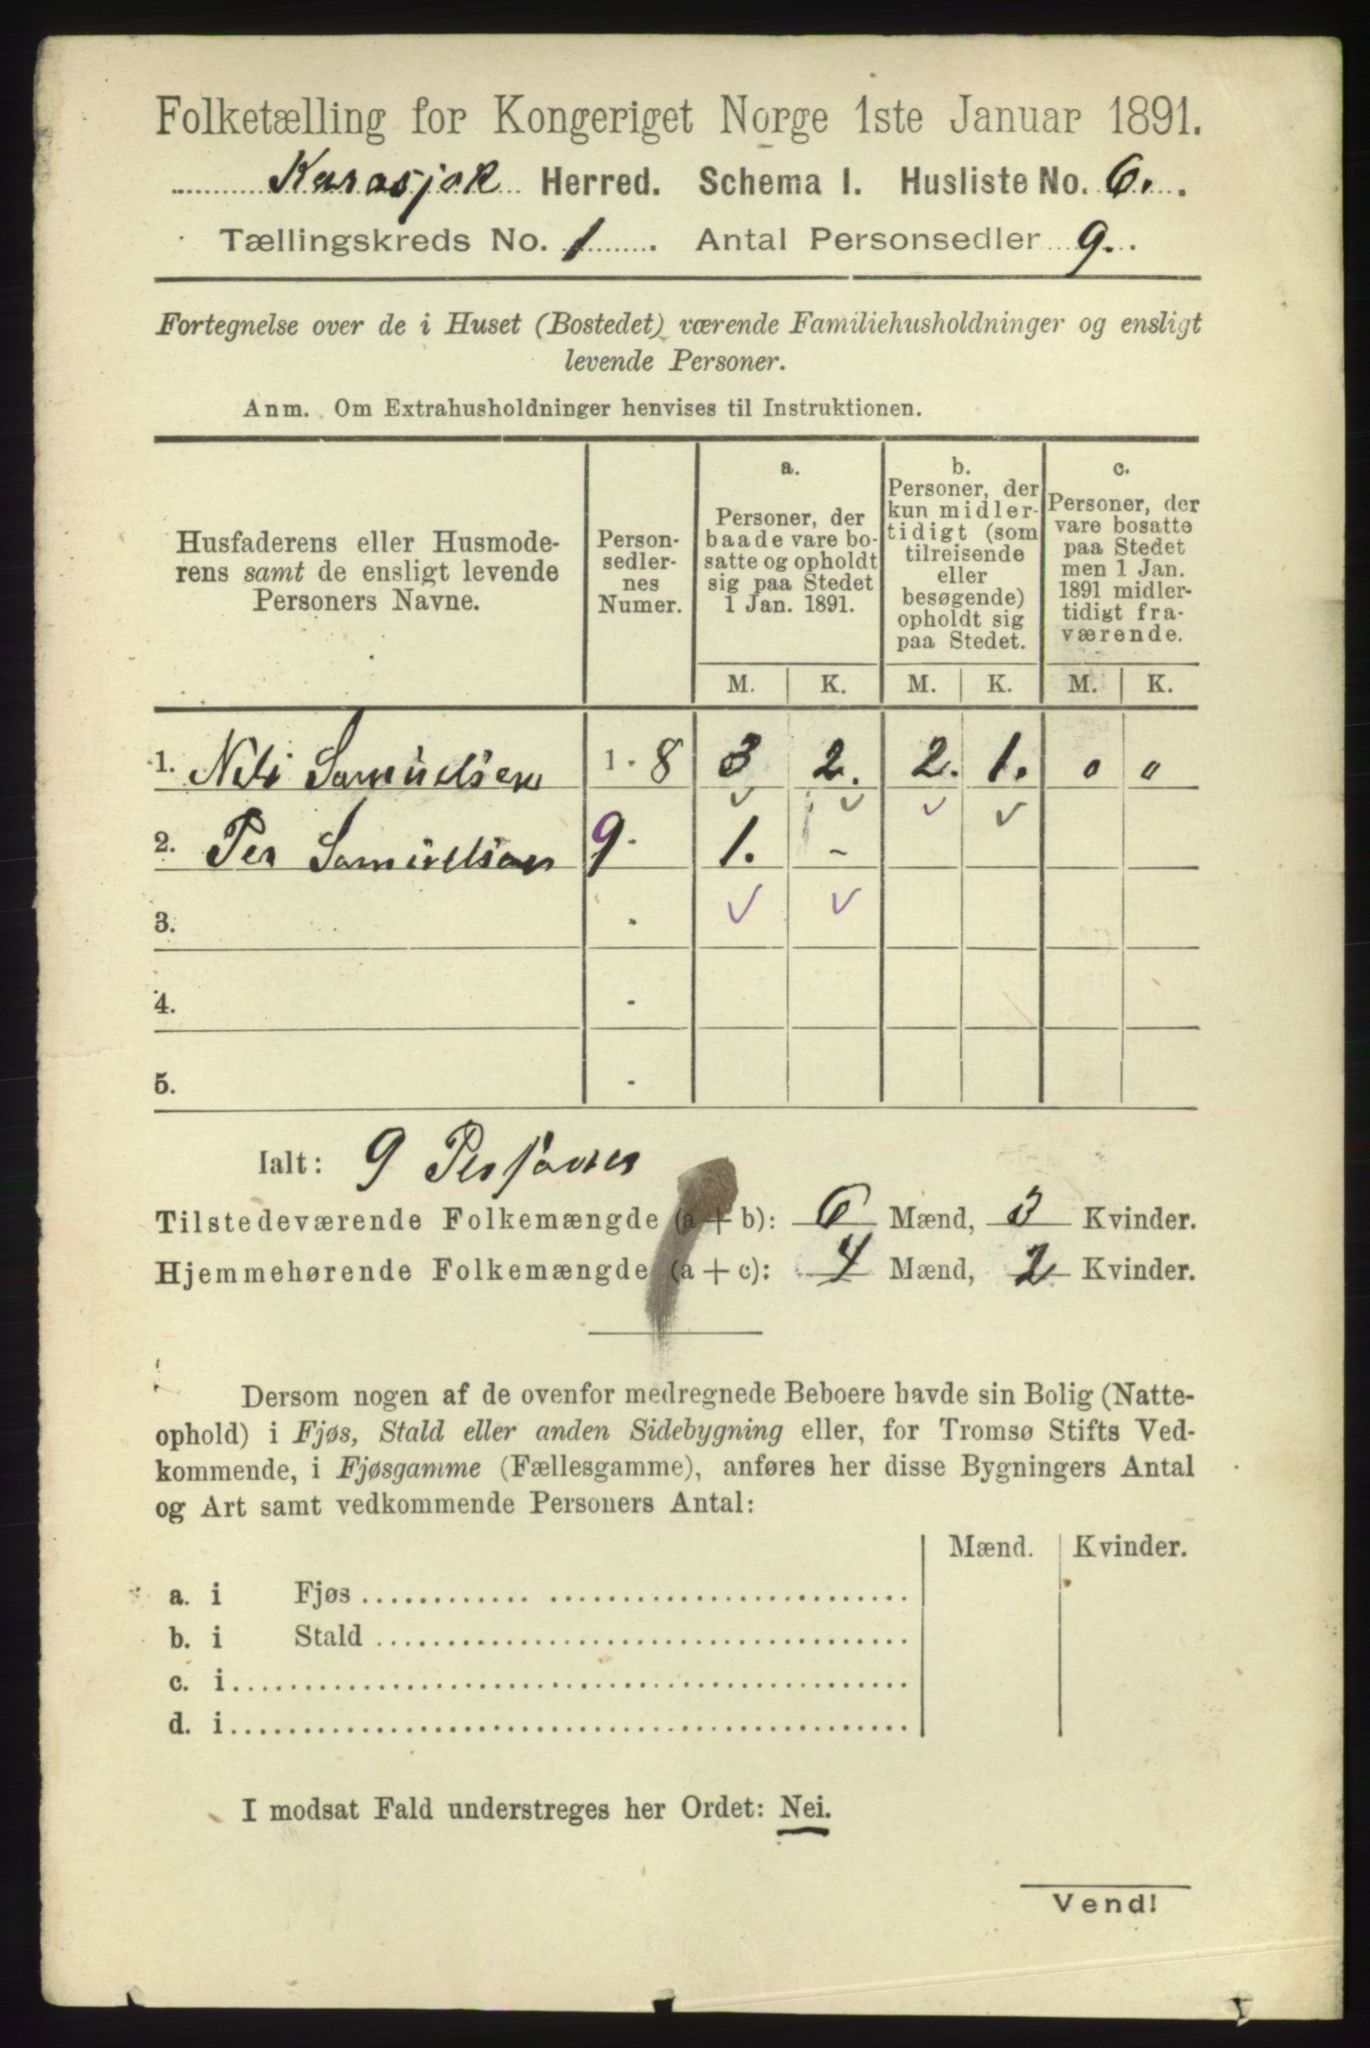 Folketælling for Kongeriget Norge 1ste Januar 1891.
Karasjok Herred. Schema I. Husliste No. 6.
Tællingskreds No. 1. Antal Personsedler 9.
Fortegnelse over de i Huset (Bostedet) værende Familiehusholdninger og ensligt
levende Personer.
Anm. Om Extrahusholdninger henvises til Instruktionen.
Husfaderens eller Husmode-
rens samt de ensligt levende
Personers Navne.
Person-
sedler-
nes
Numer.
a.
Personer, der
baade vare bo-
satte og opholdt
sig paa Stedet
1 Jan. 1891.
b.
Personer, der
kun midler-
tidigt (som
tilreisende
eller
besøgende)
opholdt sig
paa Stedet.
c.
Personer, der
vare bosatte
paa Stedet
men 1 Jan.
1891 midler-
tidigt fra-
værende.
M. K. M. K. M. K.
1. Nils Samuelsen 1 - 8 3 2. 2. 1. 0 0
2. Per Samuelsen 9 - 1. -
3. -
4. -
5. -
Ialt: 9 Personer
Tilstedeværende Folkemængde (a + b): 6 Mænd, 3 Kvinder.
Hjemmehørende Folkemængde (a + c): 4 Mænd, 2 Kvinder.
Dersom nogen af de ovenfor medregnede Beboere havde sin Bolig (Natte-
ophold) i Fjøs, Stald eller anden Sidebygning eller, for Tromsø Stifts Ved-
kommende, i Fjøsgamme (Fællesgamme), anføres her disse Bygningers Antal
og Art samt vedkommende Personers Antal:
Mænd. Kvinder.
a. i Fjøs
b. i Stald
c. i
d. i
I modsat Fald understreges her Ordet: Nei.
Vend!